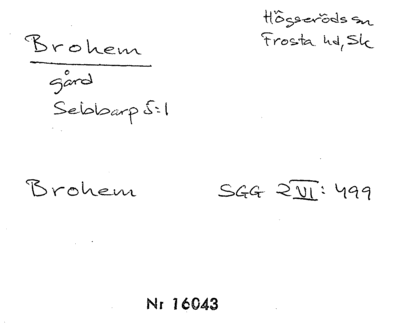 Högseröds sn
Frosta hd, Sk
Brohem
gård
Sebbarp 5:1
Brohem SGG 2 VI: 499
Nr 16043